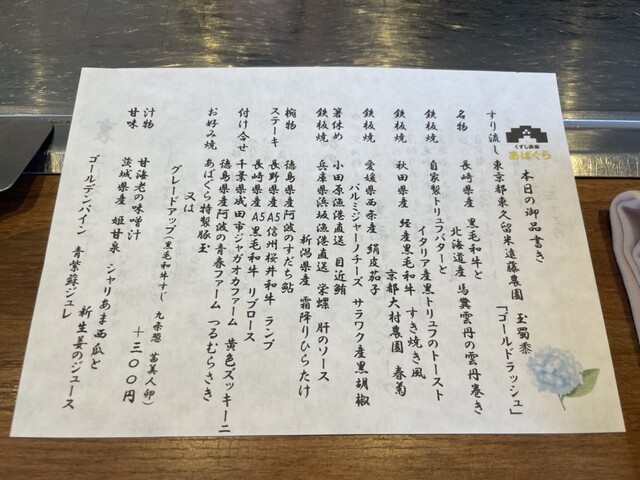 くずし鉄板
あばぐら
本日の御品書き
すり流し 東京都東久留米遠藤農園 玉蜀黍
「ゴールドラッシュ」
名物 長崎県産 黒毛和牛と
北海道産 馬糞雲丹の雲丹巻き
鉄板焼 自家製トリュフバターと
イタリア産黒トリュフのトースト
鉄板焼 秋田県産 経産黒毛和牛 すき焼き風
京都大村農園 春菊
鉄板焼 愛媛県西条産 絹皮茄子
パルミジャーノチーズ サラワク産黒胡椒
箸休め 小田原漁港直送 目近鮪
鉄板焼 兵庫県浜坂漁港直送 栄螺 肝のソース
新潟県産 霜降りひらたけ
椀物 徳島県産阿波のすだち鮎
ステーキ 長野県産A5信州桜井和牛 ランプ
長崎県産A5黒毛和牛 リブロース
付け合せ 千葉県成田市ジャガオカファーム 黄色ズッキーニ
徳島県産阿波の青春ファーム つるむらさき
お好み焼 あばぐら特製豚玉
又は
グレードアップ(黒毛和牛すじ 九条葱 苗美人卵)
+1300円
汁物 甘海老の味噌汁
甘味 茨城県産 姫甘泉 シャリあま西瓜と
新生姜のジュース
ゴールデンパイン 青紫蘇ジュレ